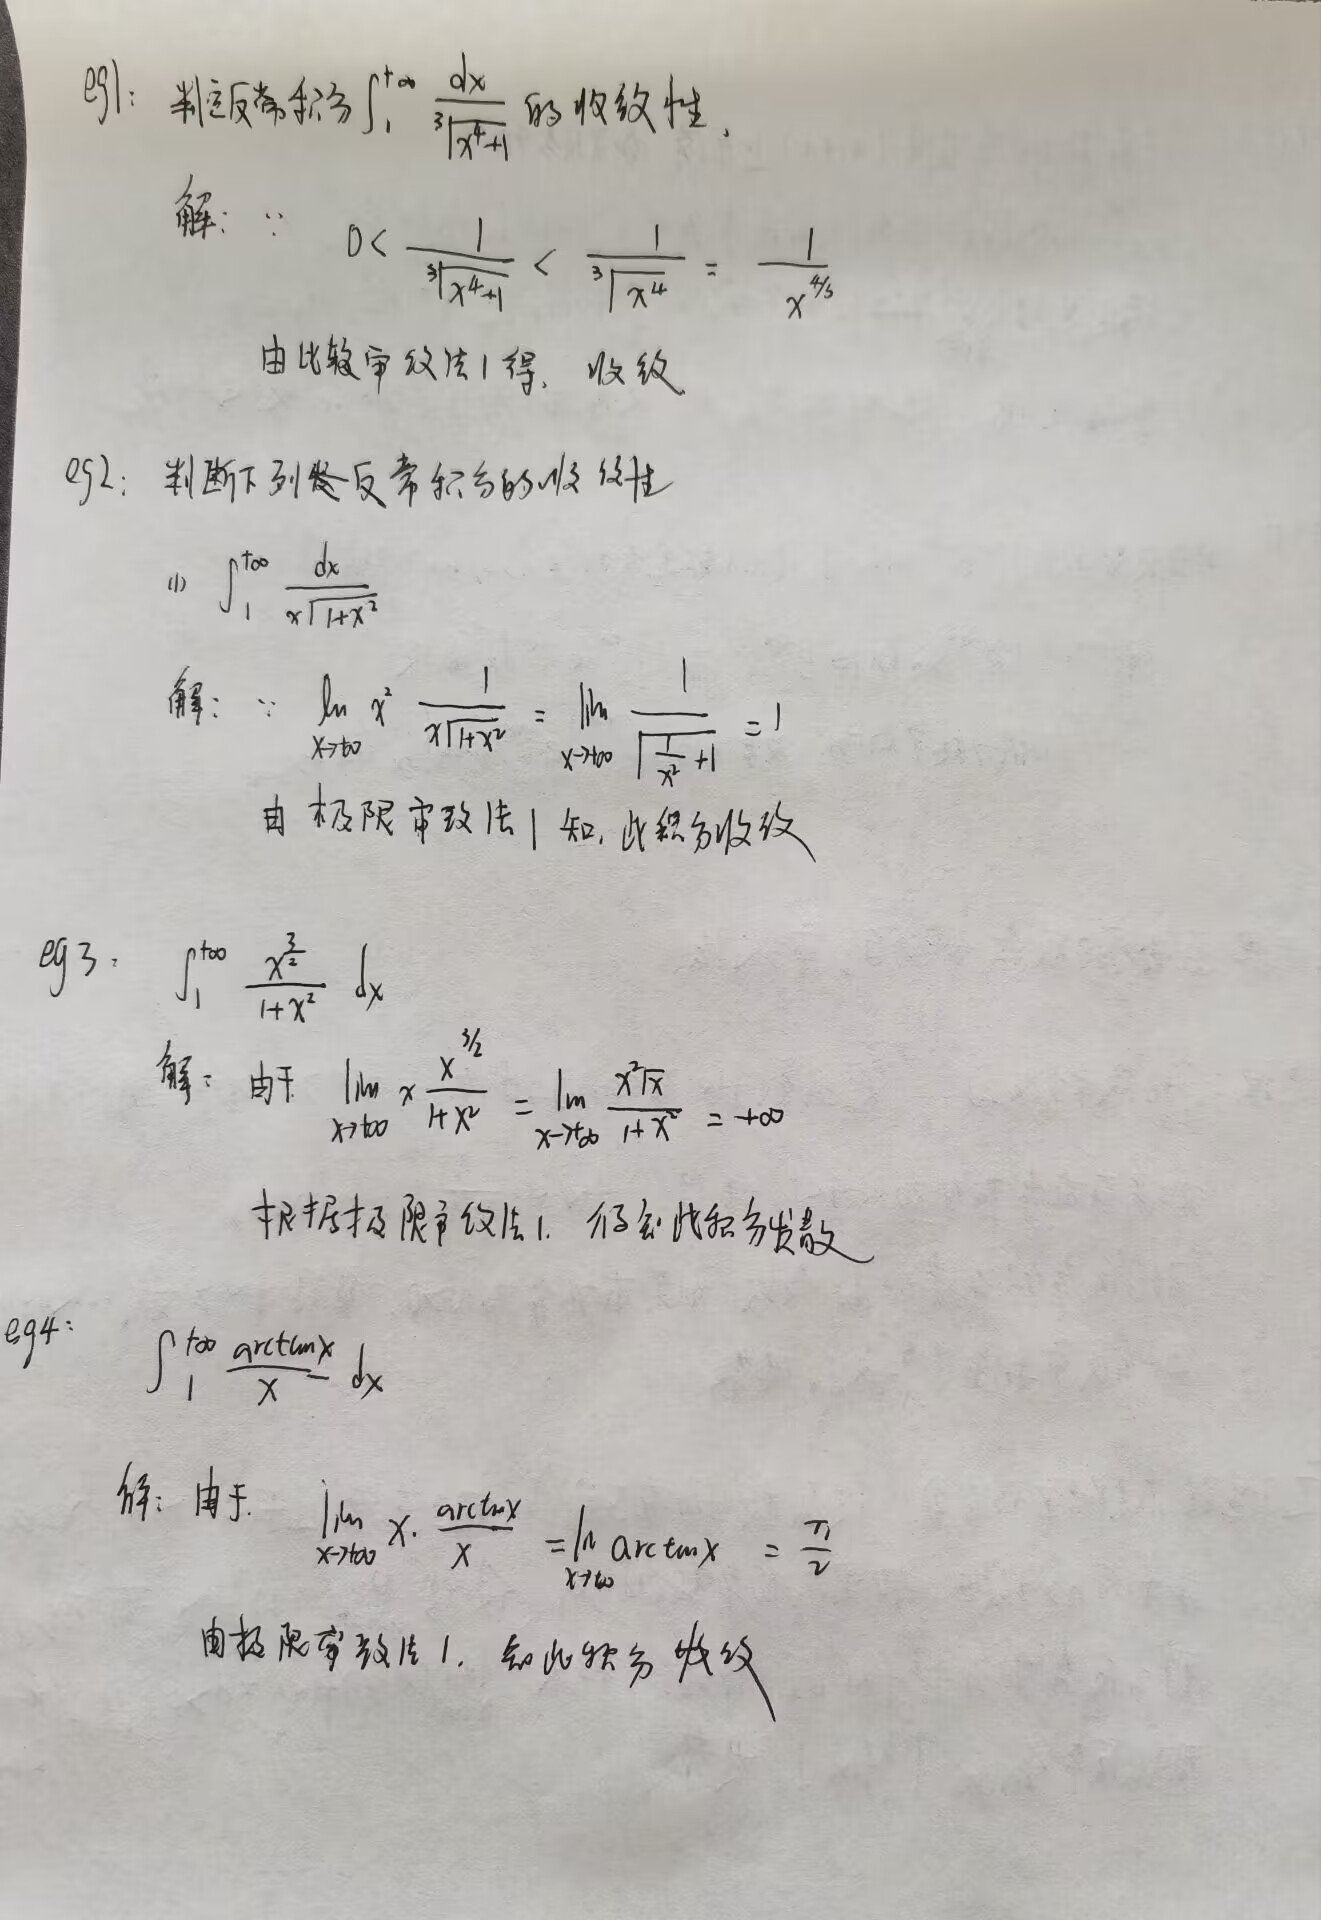 eg1: 判定反常积分 ∫₁^{+∞} dx/∛(x⁴+1) 的收敛性.
解: ∵ 0 < 1/∛(x⁴+1) < 1/∛(x⁴) = 1/x^{4/3}
由比较审敛法1得, 收敛
eg2: 判断下列反常积分的收敛性
(1) ∫₁^{+∞} dx/(x√(1+x²))
解: ∵ lim_{x→+∞} x² 1/(x√(1+x²)) = lim_{x→+∞} 1/√(1/x²+1) = 1
由极限审敛法1知, 此积分收敛
eg3: ∫₁^{+∞} x^{3/2}/(1+x²) dx
解: 由于 lim_{x→+∞} x x^{3/2}/(1+x²) = lim_{x→+∞} x²√x/(1+x²) = +∞
根据极限审敛法1, 得到此积分发散
eg4: ∫₁^{+∞} arctanx/x dx
解: 由于. lim_{x→+∞} x· arctanx/x = lim_{x→+∞} arctanx = π/2
由极限审敛法1, 知此积分收敛